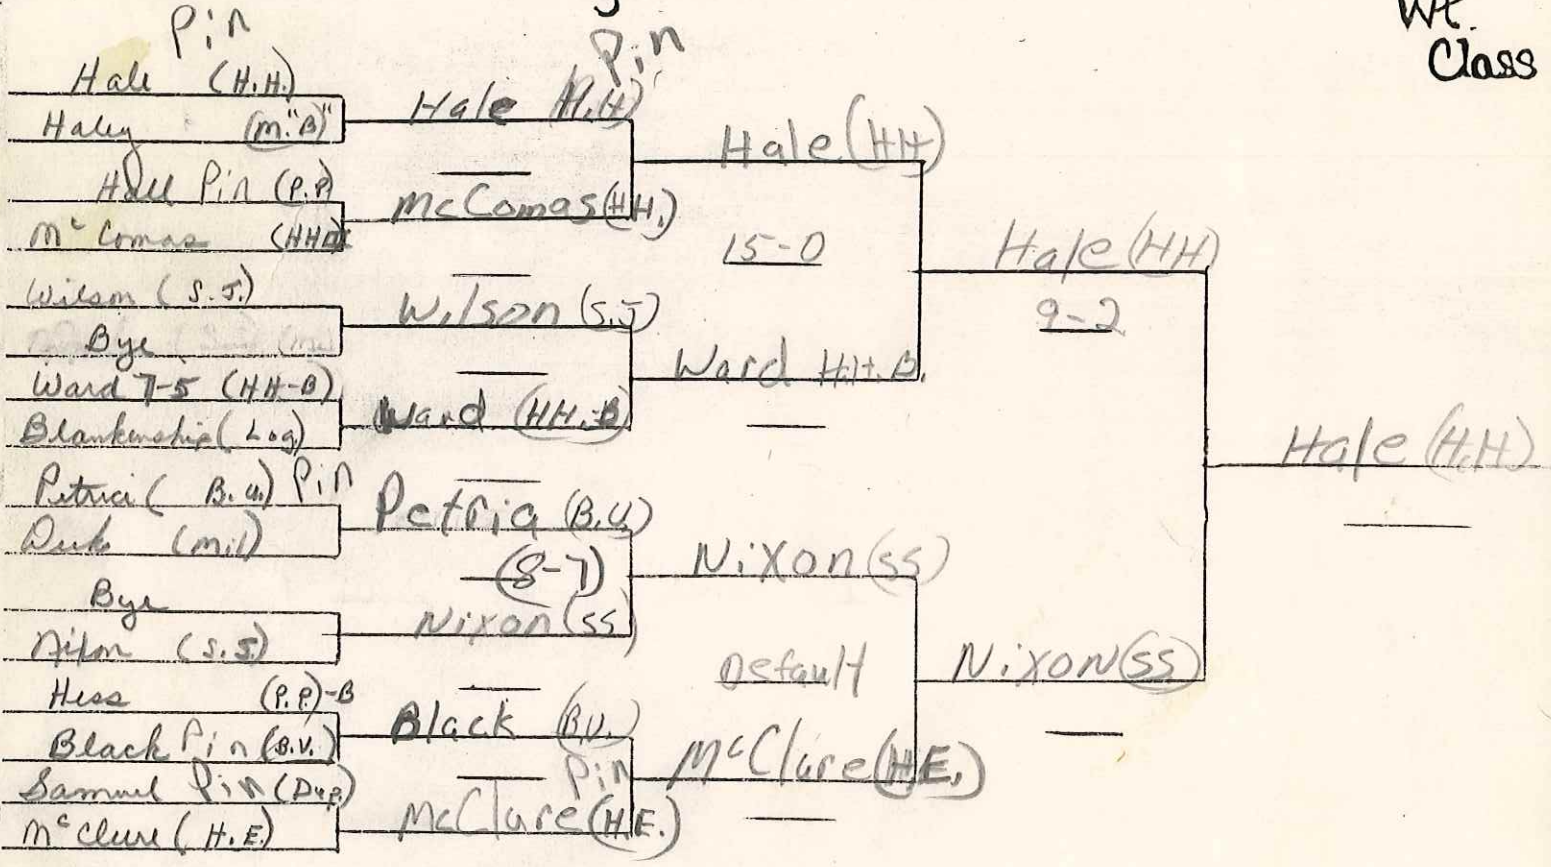 Wt.
Class
Pin
Pin
Hale (H.H.)
Haley (M."B)"
Hall Pin (P.P)
Mc Comas (HH
Wilson (S.J.)
Bye
Ward 7-5 (HH-B)
Blankenship (Log)
Petrici (B.U.) Pin
Duk (Mil)
Bye
Nixon (S.S)
Hess (P.P.)-B
Black Pin (B.U.)
Samuel Pin (Dup)
Mc Clure (H.E.)
Hale (H.H)
McComas (H.H.)
Wilson (S.J)
Ward (HH.-B)
Petria (B.U)
(8-7)
Nixon (SS)
Black (B.U.)
Pin
McClure (H.E.)
Hale (HH)
15-0
Ward H.H.B.
Nixon (SS)
Default
McClure (H.E.)
Hale (HH)
9-2
Nixon (SS)
Hale (H.H)